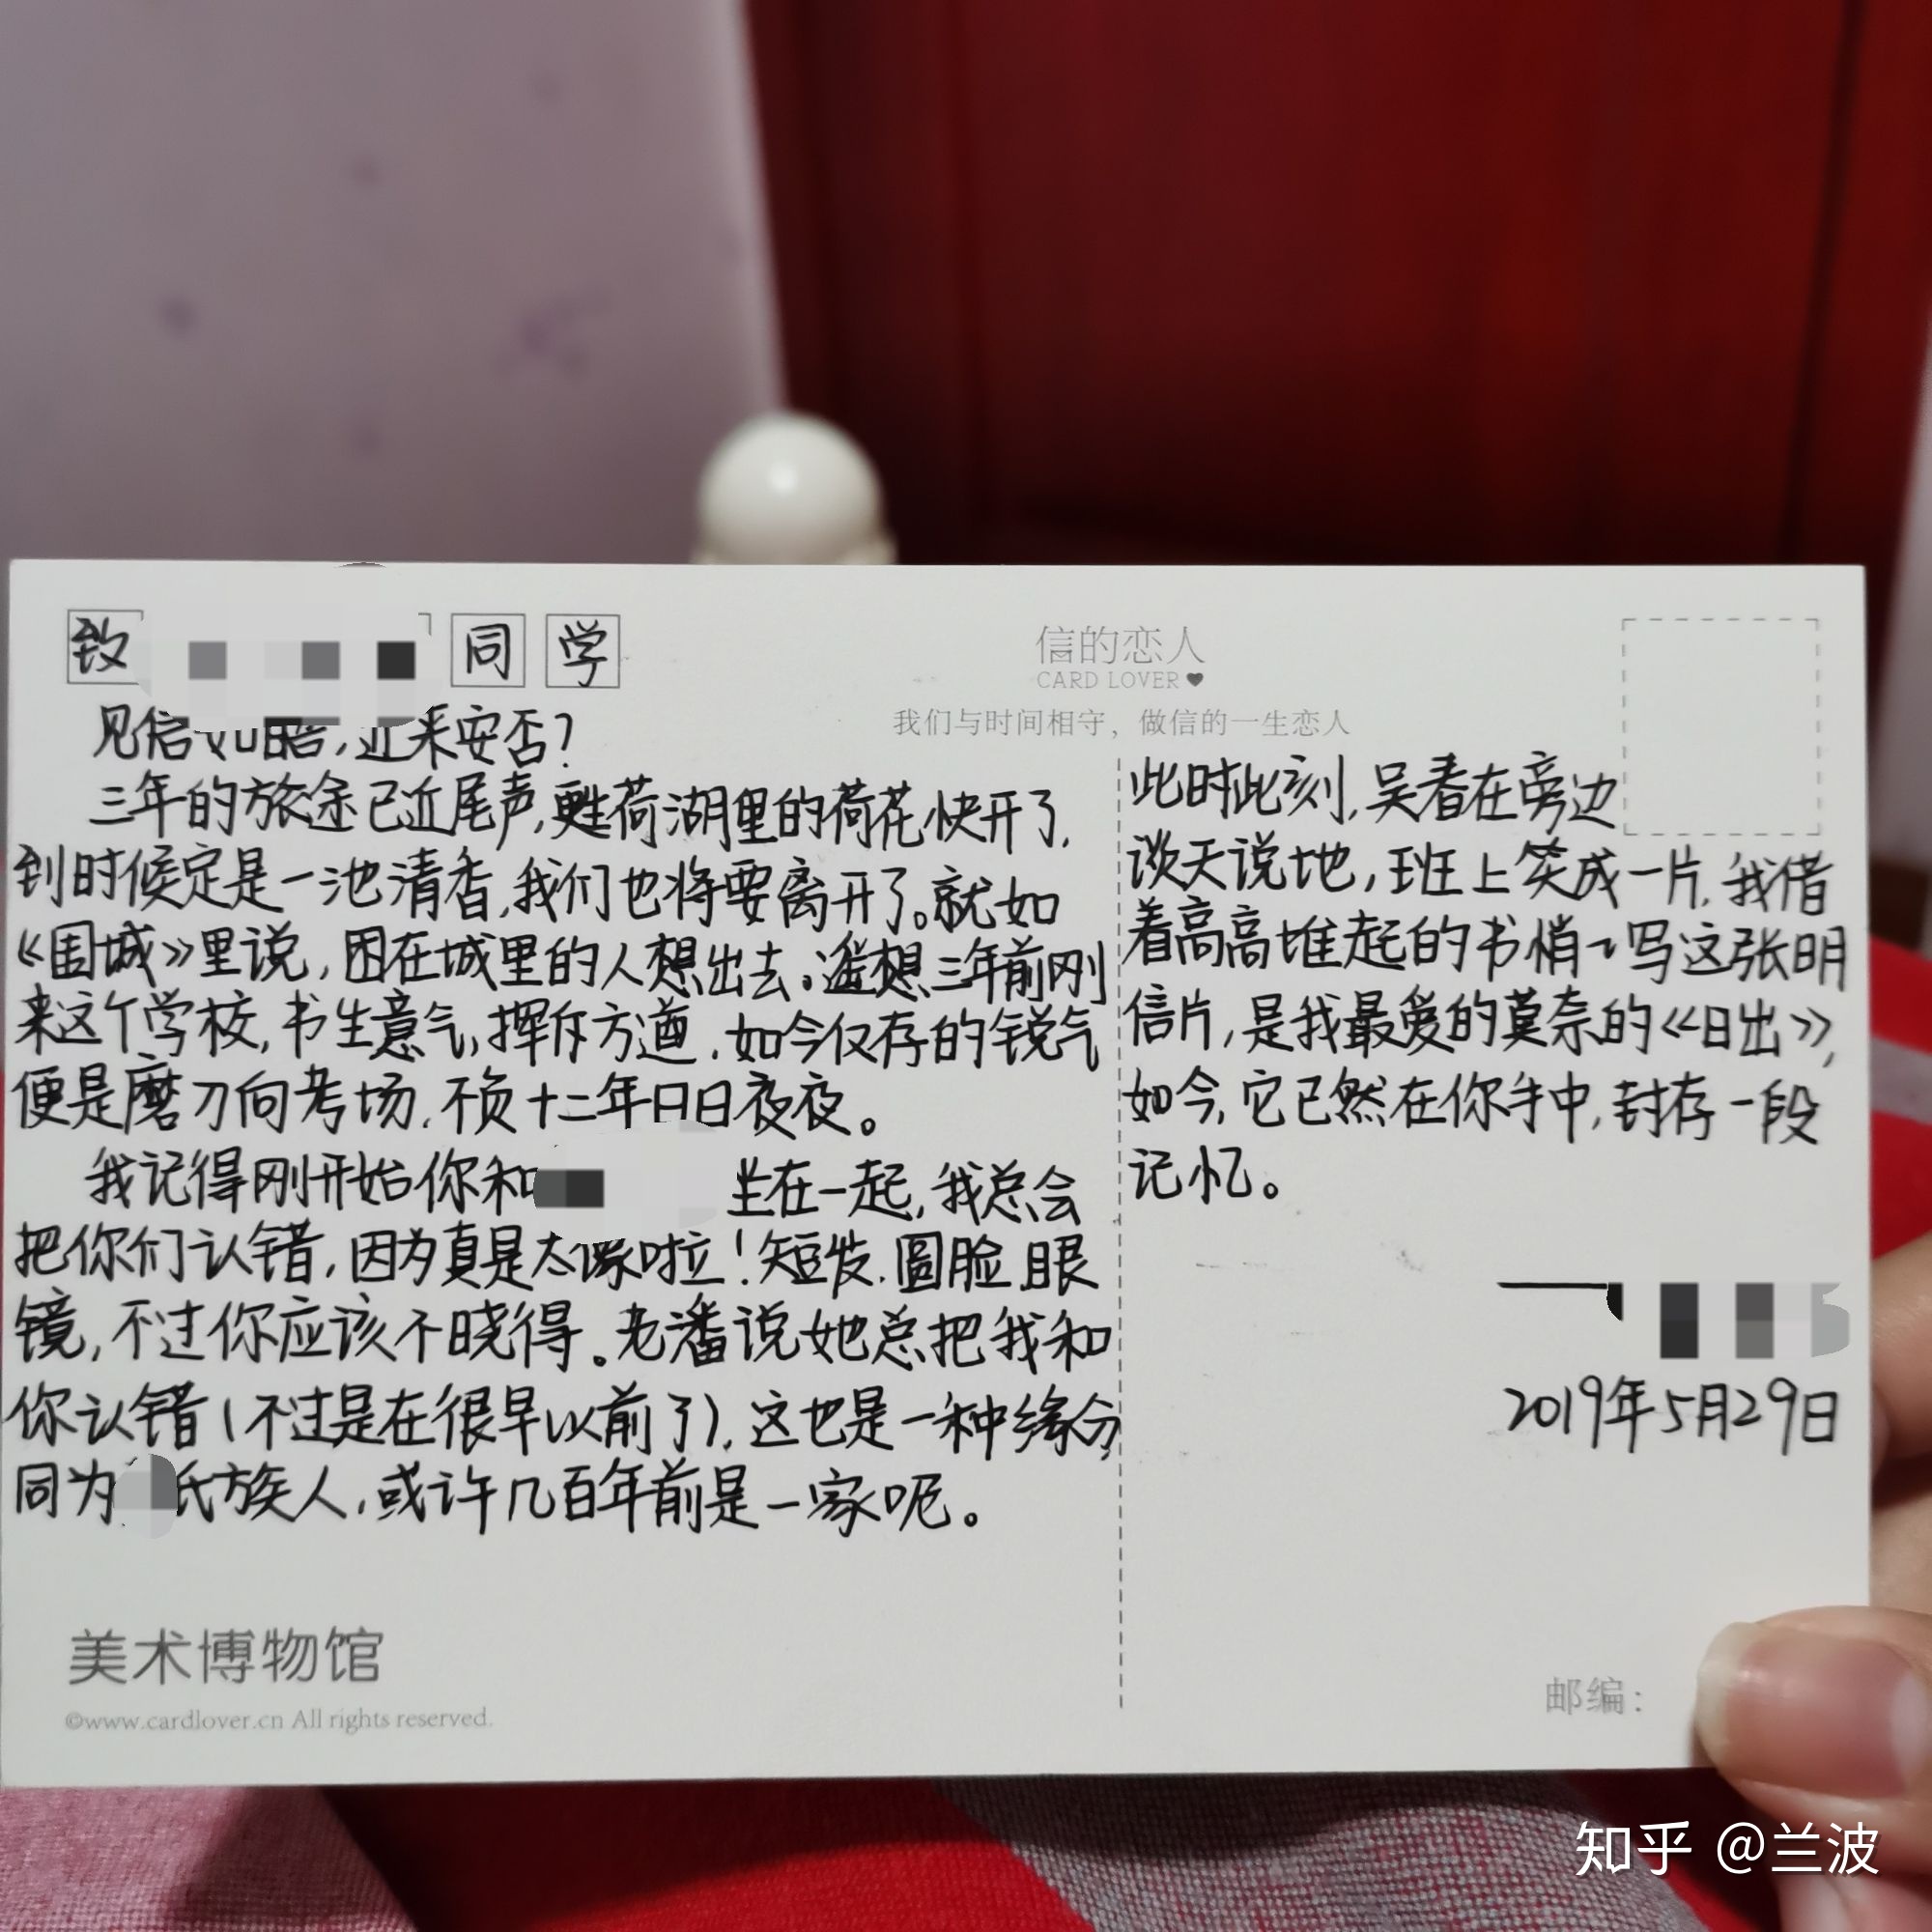 致 同学
信的恋人
CARD LOVER
我们与时间相守，做信的一生恋人
见信如晤，近来安否？
三年的旅途已近尾声，甦荷湖里的荷花快开了，
到时候定是一池清香，我们也将要离开了。就如
《围城》里说，困在城里的人想出去。遥想三年前刚
来这个学校，书生意气，挥斥方遒，如今仅存的锐气
便是磨刀向考场，不负十二年日日夜夜。
我记得刚开始你和 坐在一起，我总会
把你们认错，因为真是太像啦！短发，圆脸，眼
镜，不过你应该不晓得。老潘说她总把我和
你认错（不过是在很早以前了），这也是一种缘分，
同为 氏族人，或许几百年前是一家呢。
此时此刻，吴春在旁边
谈天说地，班上笑成一片，我借
着高高堆起的书悄々写这张明
信片，是我最爱的莫奈的《日出》，
如今，它已然在你手中，封存一段
记忆。
2019年5月29日
美术博物馆
©www.cardlover.cn All rights reserved.
邮编：
知乎 @兰波